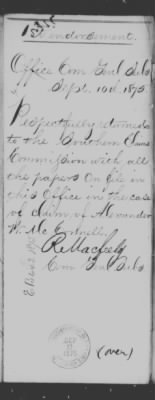 1st endorsement.
Office Com Genl Subs
Sept. 10th 1875
Respectfully returned
to the Southern Claims
Commission with all
the papers on file in
this Office in the case
of claim of Alexander
W. Mc
R Macfeely
Com Genl Subs
(over)